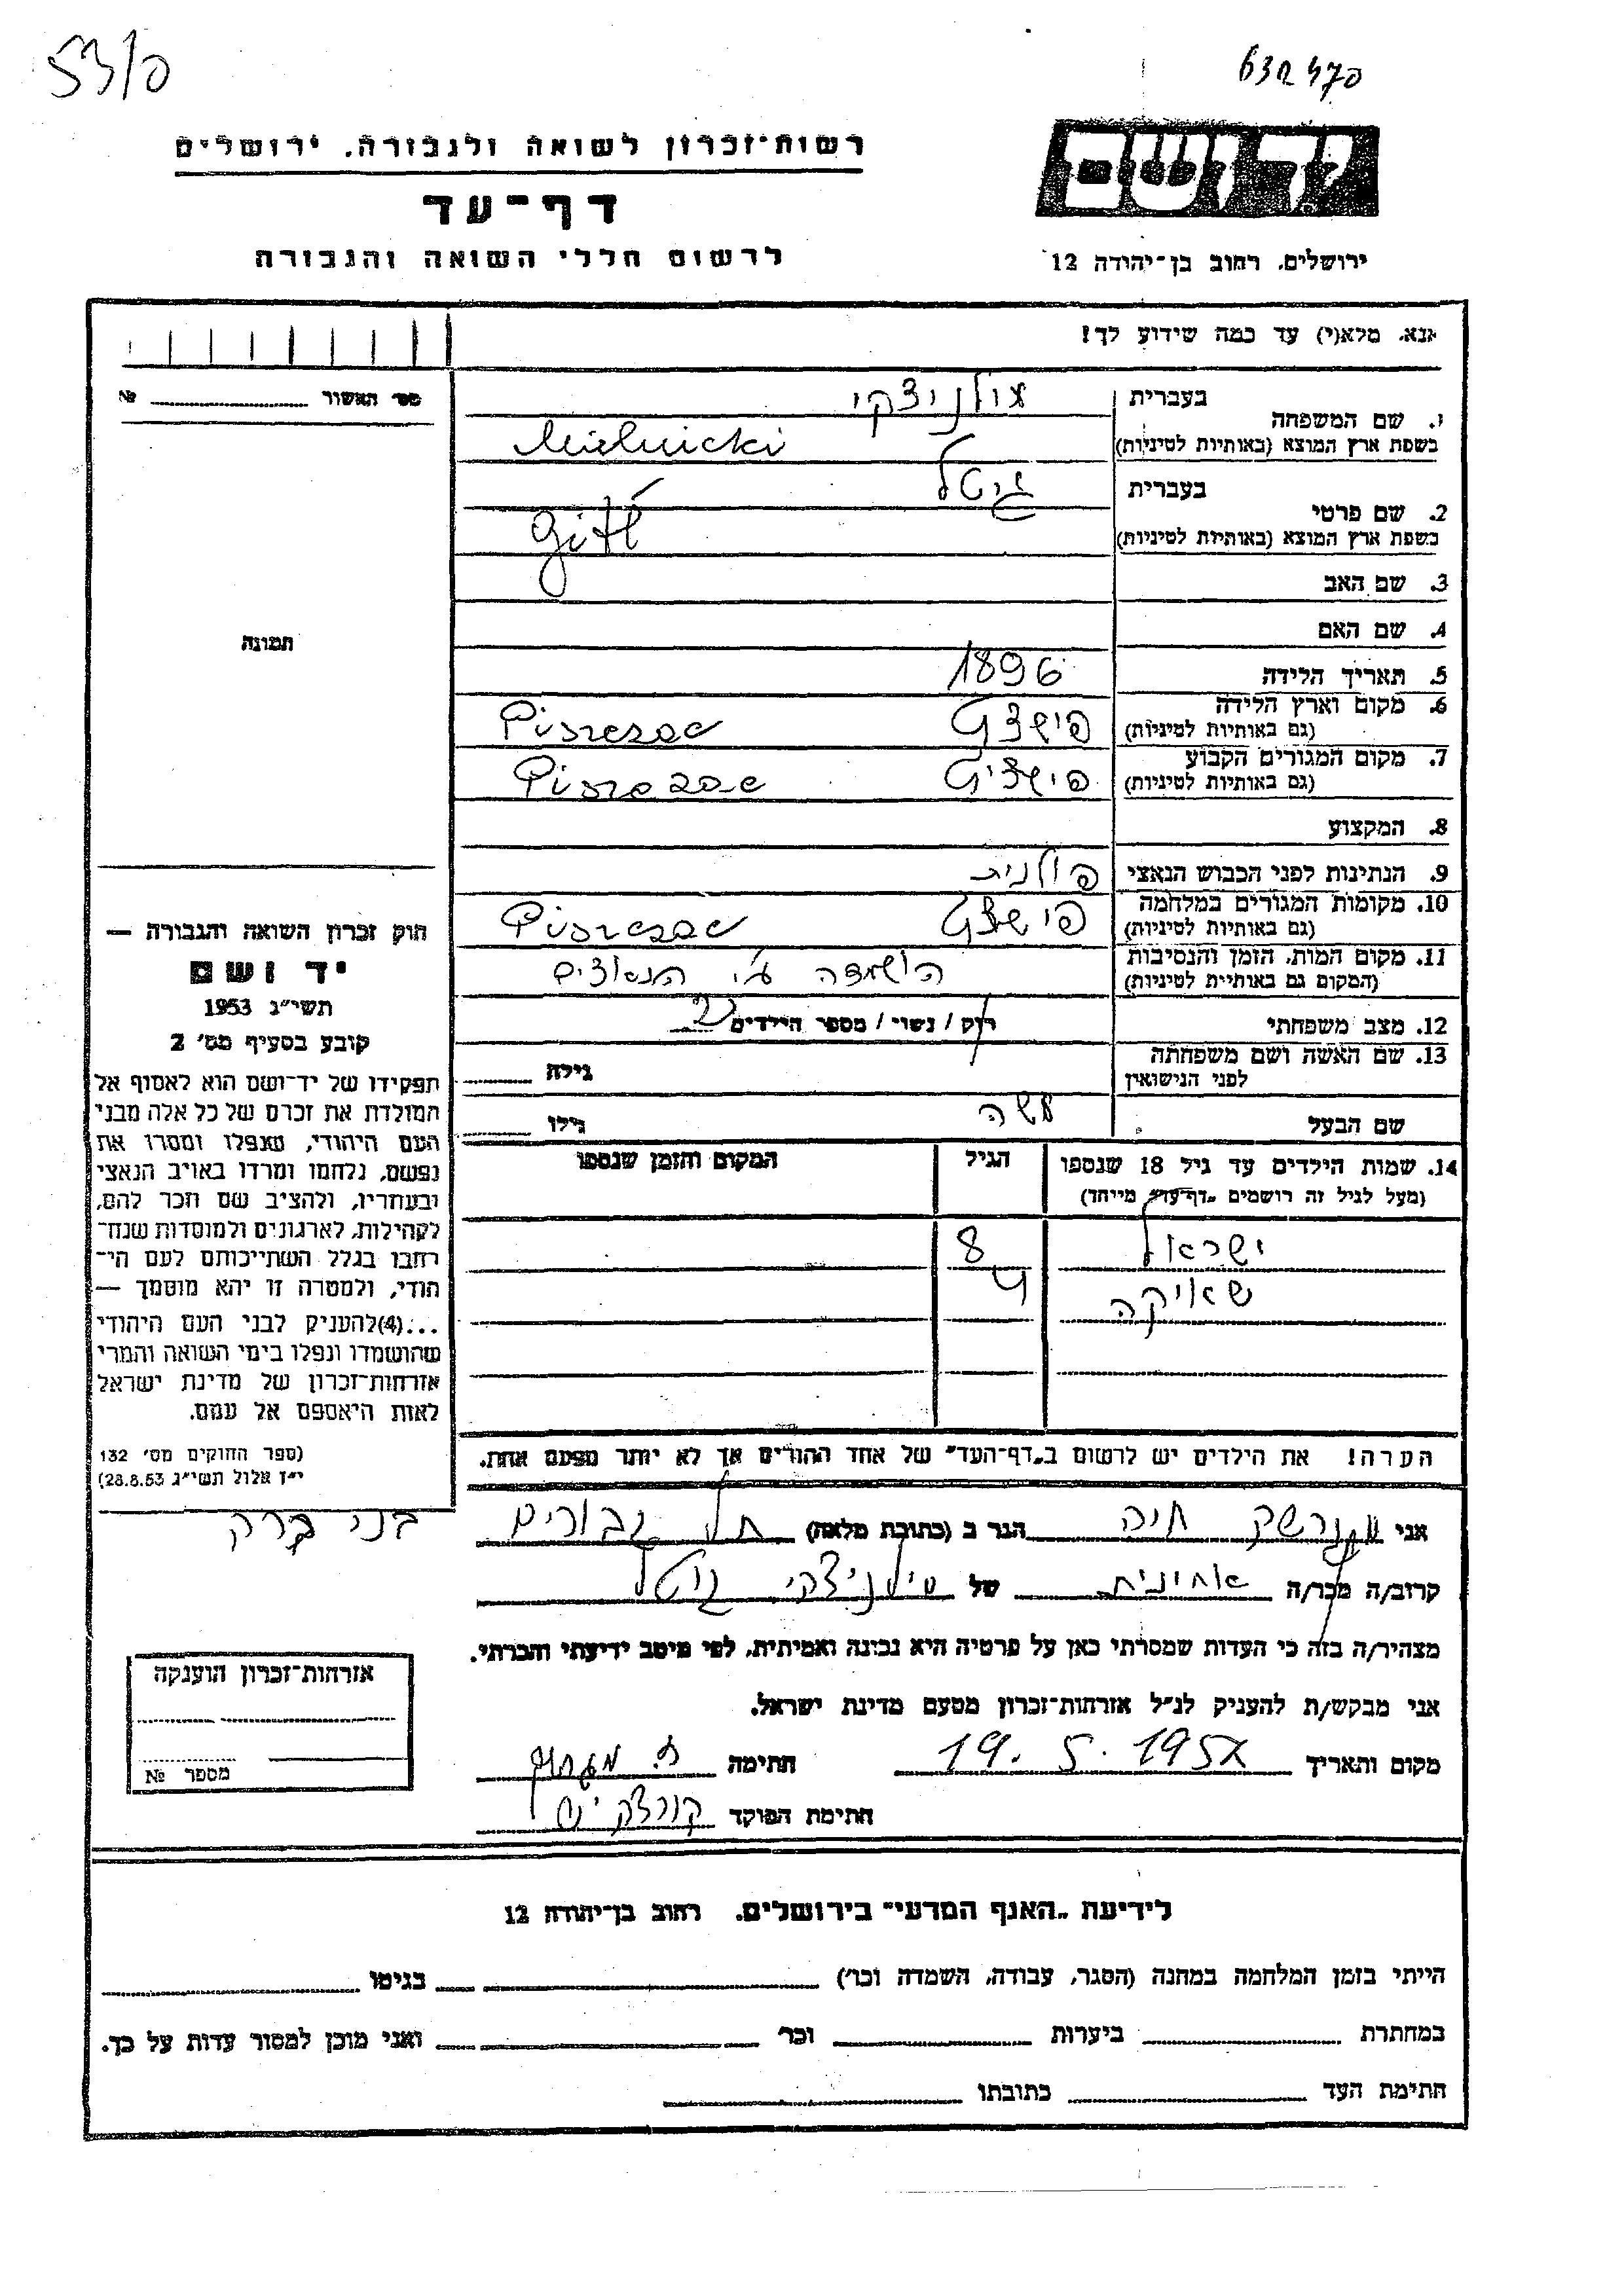 53/פ
632470
רשות־זכרון לשואה ולגבורה. ירושלים
ד ף ־ ע ד
לרשום חללי השואה והגבורה
יד ושם
ירושלים. רחוב בן־יהודה 12
אנא. מלא(י) עד כמה שידוע לך!
מס' האשור № 
1. שם המשפחה
בעברית
מילניצקי
בשפת ארץ המוצא (באותיות לטיניות)
Mielnicki
2. שם פרטי
בעברית
גיטל
בשפת ארץ המוצא (באותיות לטיניות)
Gitl
3. שם האב
4. שם האם
תמונה
5. תאריך הלידה 1896
6. מקום וארץ הלידה פישצץ Piszczac
(גם באותיות לטיניות)
7. מקום המגורים הקבוע פישצץ Piszczac
(גם באותיות לטיניות)
8. המקצוע
9. הנתינות לפני הכבוש הנאצי פולנית
10. מקומות המגורים במלחמה פישצץ Piszczac
(גם באותיות לטיניות)
11. מקום המות. הזמן והנסיבות הושמדה ע"י הנאצים
(המקום גם באותיות לטיניות)
12. מצב משפחתי רוק / נשוי / מספר הילדים 2
13. שם האשה ושם משפחתה גילה
לפני הנישואין
שם הבעל משה גילו
14. שמות הילדים עד גיל 18 שנספו הגיל המקום והזמן שנספו
(מעל לגיל זה רושמים „דף־עד״ מיוחד)
ישראל 8
4
הערה! את הילדים יש לרשום ב„דף־העד״ של אחד ההורים אך לא יותר מפעם אחת.
חוק זכרון השואה והגבורה —
יד ושם
תשי״ג 1953
קובע בסעיף מס' 2
תפקידו של יד־ושם הוא לאסוף אל
המולדת את זכרם של כל אלה מבני
העם היהודי, שנפלו ומסרו את
נפשם, נלחמו ומרדו באויב הנאצי
ובעוזריו, ולהציב שם וזכר להם,
לקהילות, לארגונים ולמוסדות שנח־
רבו בגלל השתייכותם לעם הי־
הודי, ולמטרה זו יהא מוסמך —
...(4)להעניק לבני העם היהודי
שהושמדו ונפלו בימי השואה והמרי
אזרחות־זכרון של מדינת ישראל
לאות היאספם אל עמם.
(ספר החוקים מס' 132
י״ז אלול תשי״ג 28.8.53)
אני חיה הגר ב (כתובת מלאה) תל גבורים בני ברק
קרוב/ה מכר/ה אחינית של מילניצקי גיטל
מצהיר/ה בזה כי העדות שמסרתי כאן על פרטיה היא נכונה ואמיתית, לפי מיטב ידיעתי והכרתי.
אני מבקש/ת להעניק לנ״ל אזרחות־זכרון מטעם מדינת ישראל.
מקום ותאריך 19. 5. 195 חתימה
חתימת הפוקד
אזרחות־זכרון הוענקה
מספר №
לידיעת „האגף המדעי״ בירושלים. רחוב בן־יהודה 12
הייתי בזמן המלחמה במחנה (הסגר, עבודה, השמדה וכו') בגיטו
במחתרת ביערות וכו' ואני מוכן למסור עדות על כך.
חתימת העד כתובתו